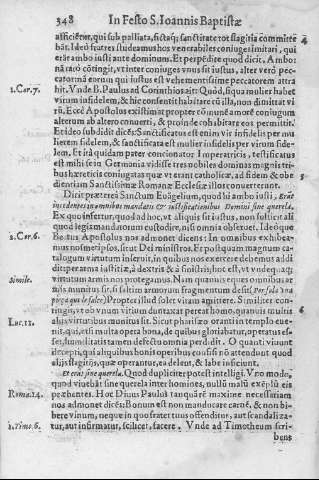 348 In Festo S. Ioannis Baptistæ
afficiẽtes, qui sub palliata, fictaq; sanctitate tot flagitia committe
bãt. Ideò fratres studeamus hos venerabiles coniuges imitari, qui
erãt ambo iusti ante dominum. Et perpẽdite quod dicit, Ambo
nã rarò cõtingit, vt inter coniuges vnus sit iustus, alter verò pec-
catormã eorum qui iustus est vehemẽtissime peccatorem attra
1. Cor. 7. hit. Vnde B. Paulus ad Corinthios ait: Quòd, si qua mulier habet
virum infidelem, & hic consentit habitare cũ illa, non dimittat vi
rũ. Ecce Apostolus existimat propter cõmunẽ amorẽ coniugum
alterum ab altero conuerti, & proinde cohabitare eos permittit.
Et ideo subdidit dicẽs: Sanctificatus est enim vir infidelis per mu
lierem fidelem, & sanctificata est mulier infidelis per virum fide-
lem. Et ità quidam pater concionator Imperatricis, testificatus
est mihi se in Germania vidisse tres nobiles dominas magnis tri
bus hæreticis coniugatas quæ vt erant catholicæ, ad fidem & obe
dientiam Sanctissimæ Romanæ Ecclesiæ illos conuerterunt.
Dicit præterea Sanctum Euãgelium, quod hi ambo iusti, Erãt
incedentes in omnibus mandatis & iustificationibus Domini sine querela.
Ex quo insertur, quod ad hoc, vt aliquis sit iustus, non sufficit ali
quod legis mandatorum custodire, nisi omnia obseruet. Ideòque
2. Cor. 6. Beatus Apostolus nos admonet dicens: In omnibus exhibea-
mus nosmetipsos, sicut Dei ministros. Et postquàm magnum ca-
talogum virtutum inseruit, in quibus nos exercere debemus addi
dit: per arma iustitiæ, à dextris & à sinistris, hoc est, vt vndequaq;
virtutum armis nos protegamus. Nam quamuis eques omnibus ar
Simile. mis munitus sit, si saltim armorum fragmentum desit (
) Propter illud solet vitam amittere. Similiter con-
tingit, vt ob vnum vitium duntaxat pereat homo, quamuis multis
Luc. 18. alijs virtutibus munitus sit. Sicut pharisæo oranti in templo eue-
nit, qui, etsi multa opera bona, de quibus gloriabatur, operatus es-
set, humilitatis tamen defectu omnia perdidit. O quanti viuunt
decepti, qui aliquibus bonis operibus confisi nõ attendunt quod
alijs flagitijs, quæ operantur, ea delent, & labefaciunt.
Et erãt sine querela. Quod dupliciter potest intelligi. Vno modo,
quod viuebãt sine querela inter homines, nullũ malũ exẽplũ eis
Roma. 14. præbentes. Hoc Diuus Paulus tanquã rẽ maximè necessariam
nos admonet dicẽs: Bonum est non manducare carnẽ, & non bi-
bere vinum, neque in quo frater tuus offenditur, aut scandaliza-
1. Timo. 6. tur, aut infirmatur, scilicet facere. Vnde ad Timotheum scri
bens
4
5
6